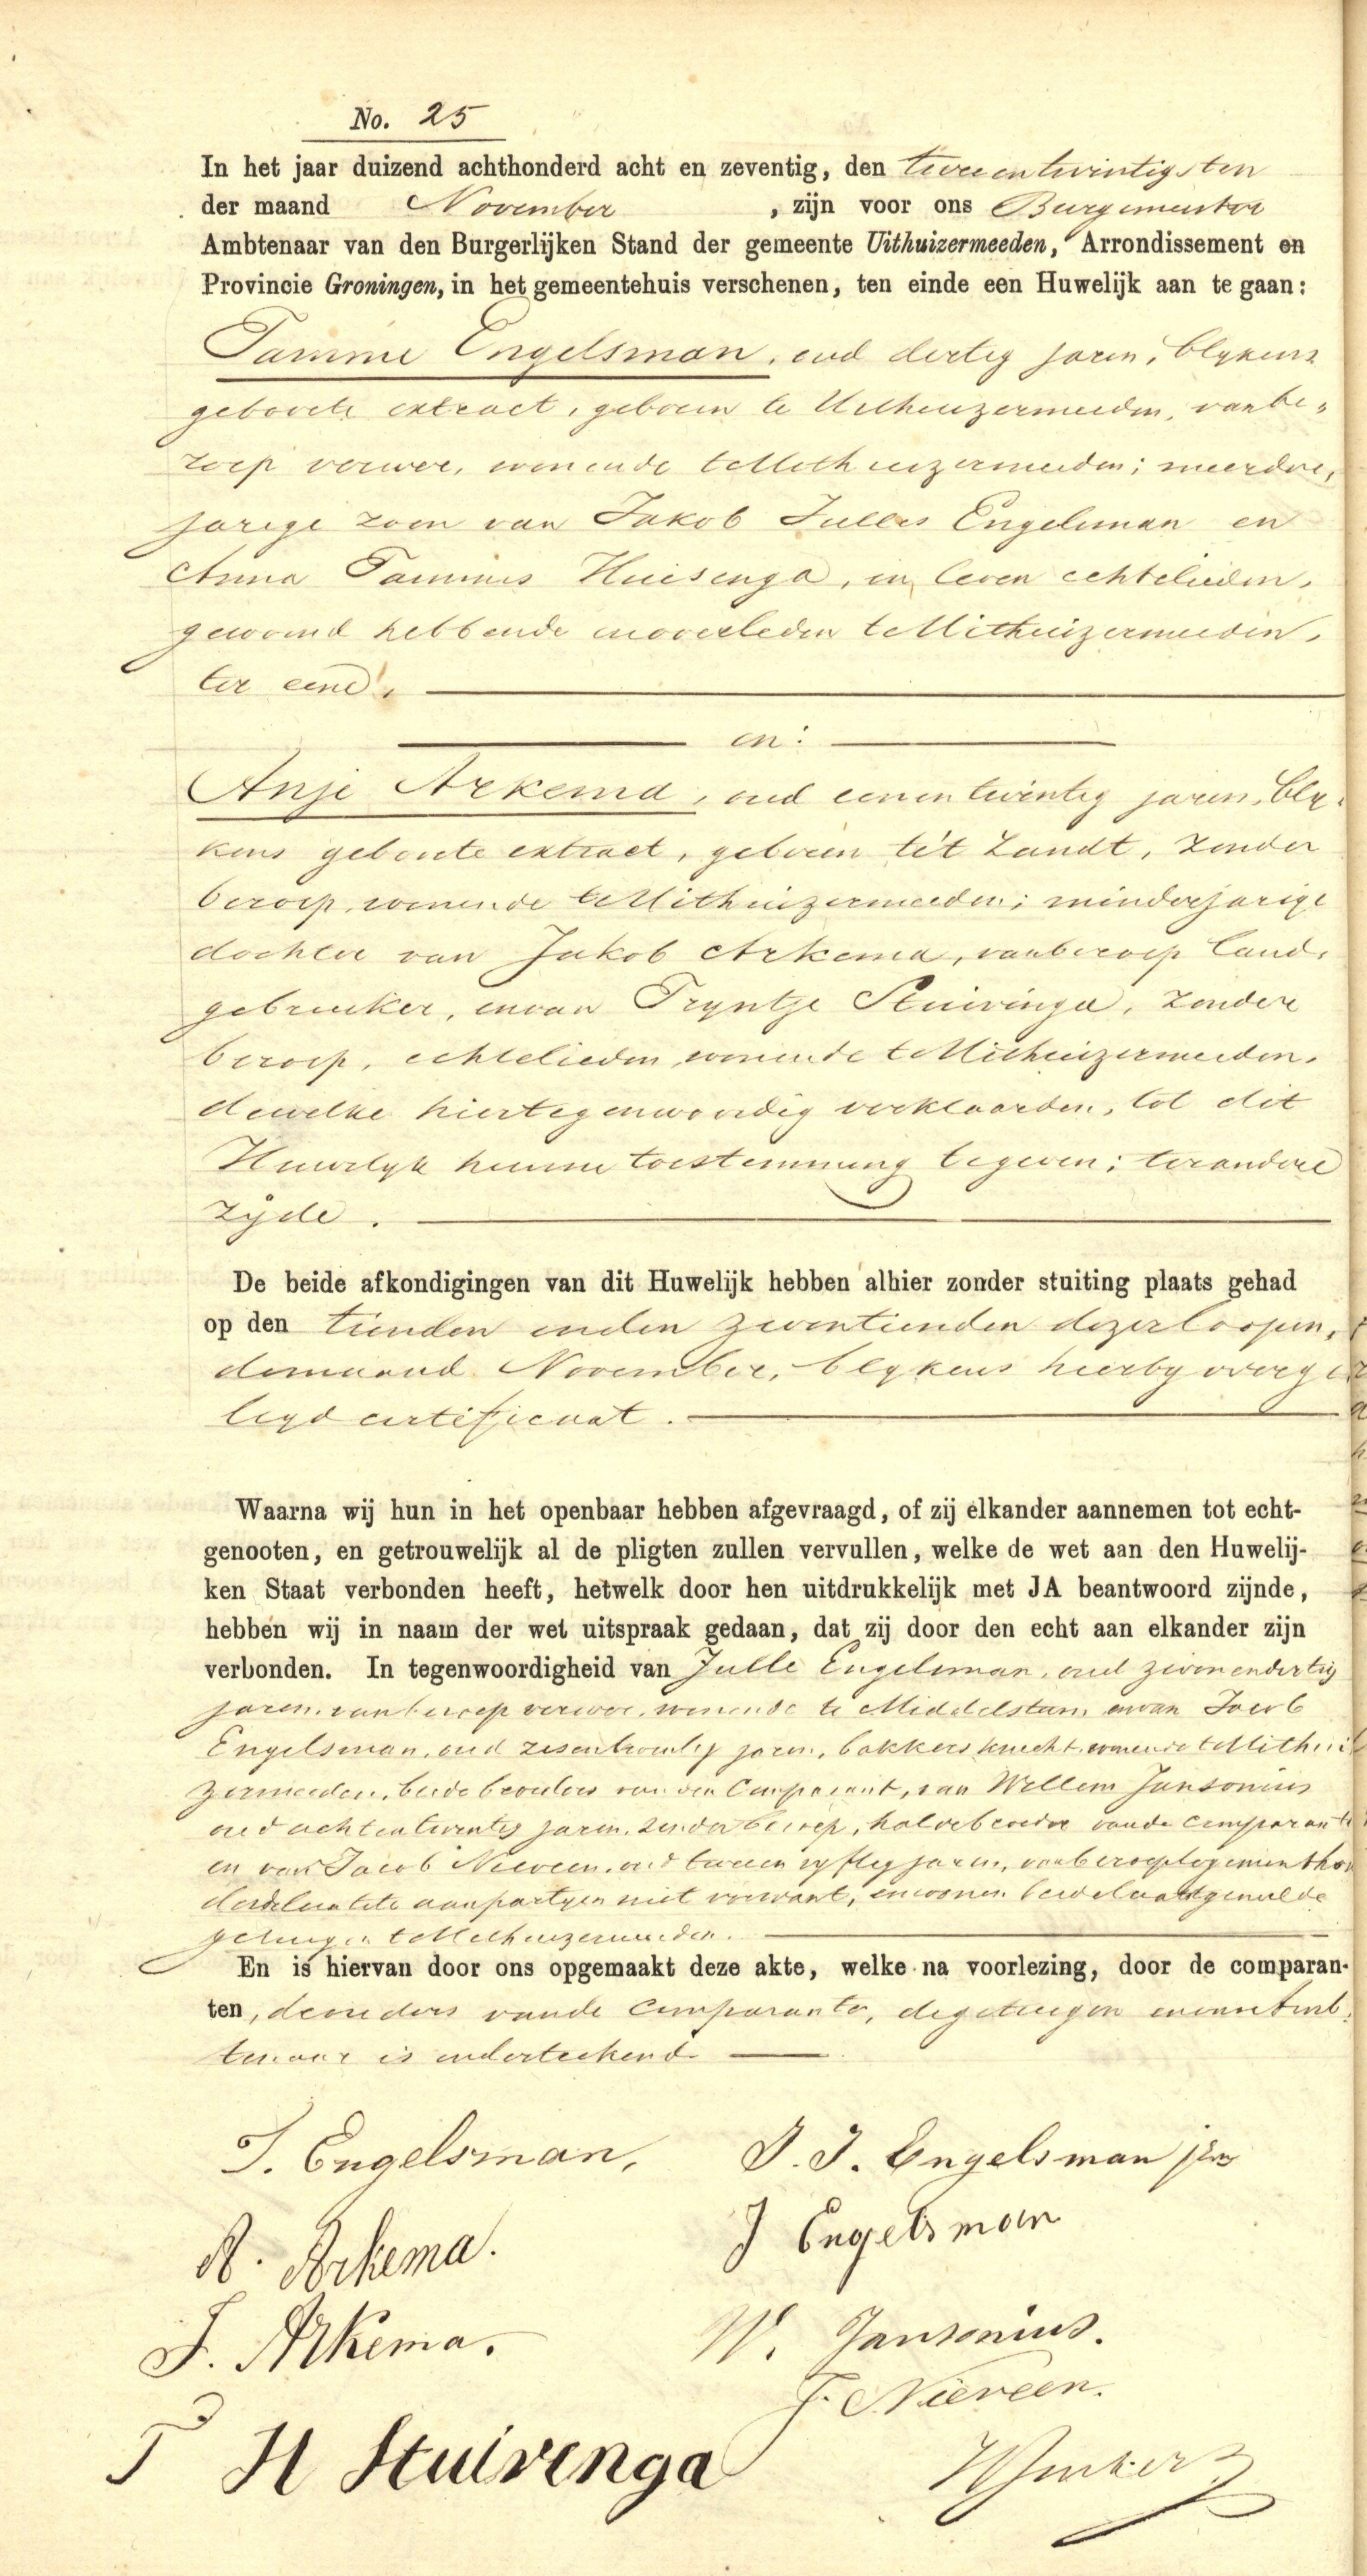 No. 25
In het jaar duizend achthonderd acht en zeventig, den tweeentwintigsten
der maand November, zijn voor ons Burgemeester
Ambtenaar van den Burgerlijken Stand der gemeente Uithuizermeeden, Arrondissement en
Provincie Groningen, in het gemeentehuis verschenen, ten einde een Huwelijk aan te gaan:
Tamme Engelsman, oud dertig jaren, blykens
geboorte extract, geboren te Uithuizermeeden, van be-
roep verwer, wonende te Uithuizermeeden; meerder-
jarige zoon van Jakob Julles Engelsman en
Anna Tammes Huisenga, in leven echtelieden,
gewoond hebbende en overleden te Uithuizermeeden,
ter eene,
en:
Anje Arkema, oud eenentwintig jaren, bly-
kens geboorte extract, geboren te 't Zandt, zonder
beroep, wonende te Uithuizermeeden; minderjarige
dochter van Jakob Arkema, van beroep land-
gebruiker, en van Tryntje Stuivinga, zonder
beroep, echtelieden, wonende te Uithuizermeeden,
dewelke hiertegenwoordig verklaarden, tot dit
Huwelyk hunne toestemming te geven; ter andere
zyde.
De beide afkondigingen van dit Huwelijk hebben alhier zonder stuiting plaats gehad
op den tienden en den zeventienden dezer loopen-
de maand November, blykens hierby overge-
legd certificaat.
Waarna wij hun in het openbaar hebben afgevraagd, of zij elkander aannemen tot echt-
genooten, en getrouwelijk al de pligten zullen vervullen, welke de wet aan den Huwelij-
ken Staat verbonden heeft, hetwelk door hen uitdrukkelijk met JA beantwoord zijnde,
hebben wij in naam der wet uitspraak gedaan, dat zij door den echt aan elkander zijn
verbonden. In tegenwoordigheid van Julle Engelsman, oud zevenendertig
jaren, van beroep verwer, wonende te Middelstum, en van Jacob
Engelsman, oud zesentwintig jaren, bakkersknecht, wonende te Uithui-
zermeeden, beide broeders van den Comparant, van Willem Jansonius
oud achtentwintig jaren, zonder beroep, halvebroeder van de comparante
en van Jacob Nieveen, oud tweeenvyftig jaren, van beroep logementhou-
der, delaatste aan partyen niet verwant, en wonen beide laatstgemelde
getuigen te Uithuizermeeden.
En is hiervan door ons opgemaakt deze akte, welke na voorlezing, door de comparan-
ten, de ouders van de Comparante, de getuigen en ons Amb-
tenaar is onderteekend
T. Engelsman, J. J. Engelsman jzn
A. Arkema. J Engelsman
J. Arkema. W. Jansonius.
J. Nieveen.
T H Stuivenga